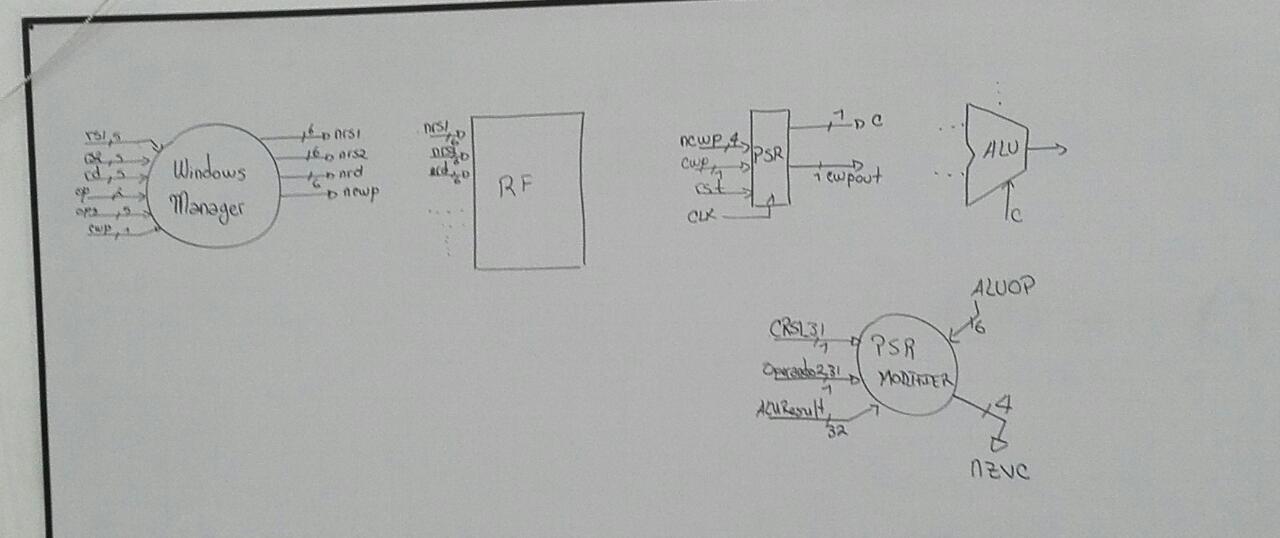 rs1,5
rs2,5
rd,5
op,2
op3,5
cwp,1
Windows
Manager
6 nrs1
6 nrs2
6 nrd
ncwp
nrs1
6
nrs2
6
nrd
6
RF
ncwp,4
cwp,1
rst
CLK
PSR
1 C
1 cwpout
ALU
C
CRS1,31
1
Operando2,31
1
ALUResult,
32
PSR
MODIFIER
ALUOP
6
4
nZVC